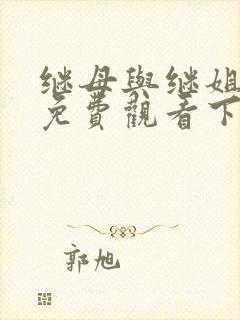 继母與继姐
免費觀看下
郭旭